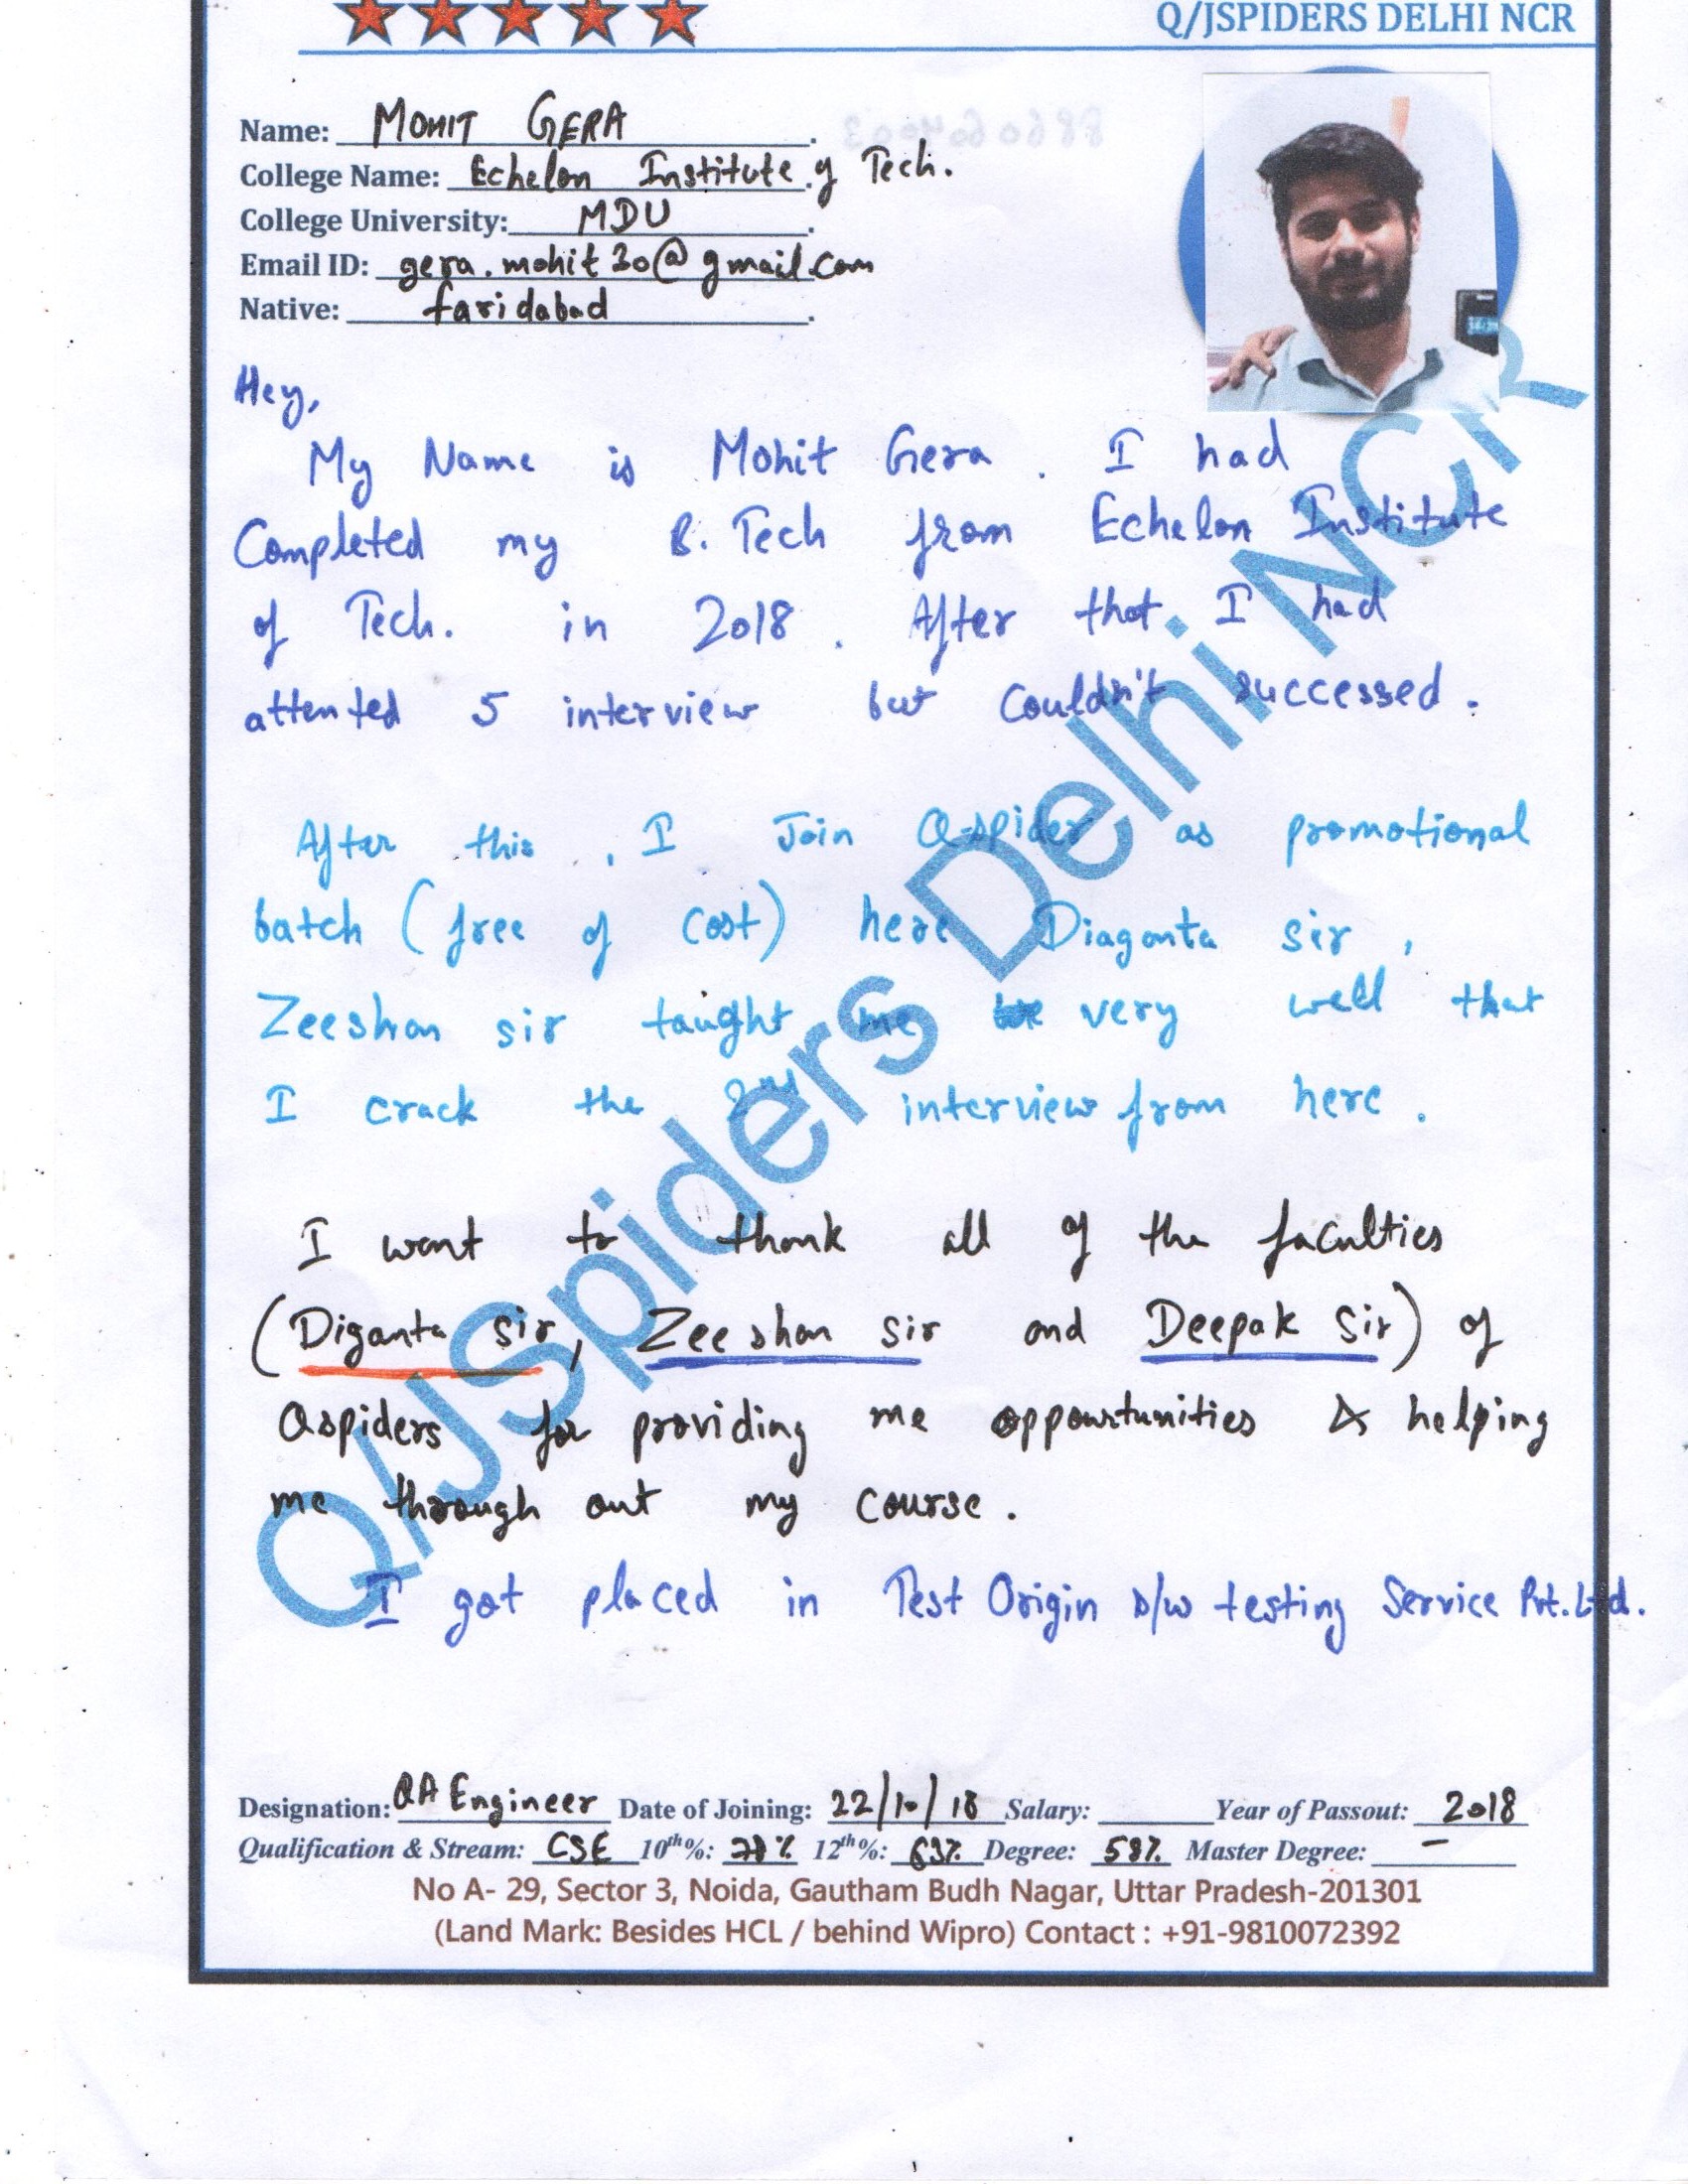 Q/JSPIDERS DELHI NCR
Name: MOHIT GERA.
College Name: Echelon Institute of Tech.
College University: MDU.
Email ID: gera.mohit30@gmail.com
Native: faridabad.
Hey,
My Name is Mohit Gera. I had
Completed my B.Tech from Echelon Institute
of Tech. in 2018. After that I had
attented 5 interview but couldn't successed.
After this, I Join Q-spider as promotional
batch (free of cost) here Diaganta sir,
Zeeshan sir taught me very well that
I crack the 2nd interview from here.
I want to thank all of the faculties
(Diganta sir, Zeeshan sir and Deepak Sir) of
Qspiders for providing me oppourtunities & helping
me through out my course.
I got placed in Test Origin s/w testing Service Pvt. Ltd.
Designation: QA Engineer Date of Joining: 22/10/18 Salary: Year of Passout: 2018
Qualification & Stream: CSE 10th%: 12th%: 63% Degree: 58% Master Degree: –
No A- 29, Sector 3, Noida, Gautham Budh Nagar, Uttar Pradesh-201301
(Land Mark: Besides HCL / behind Wipro) Contact : +91-9810072392
Q/JSpiders Delhi NCR